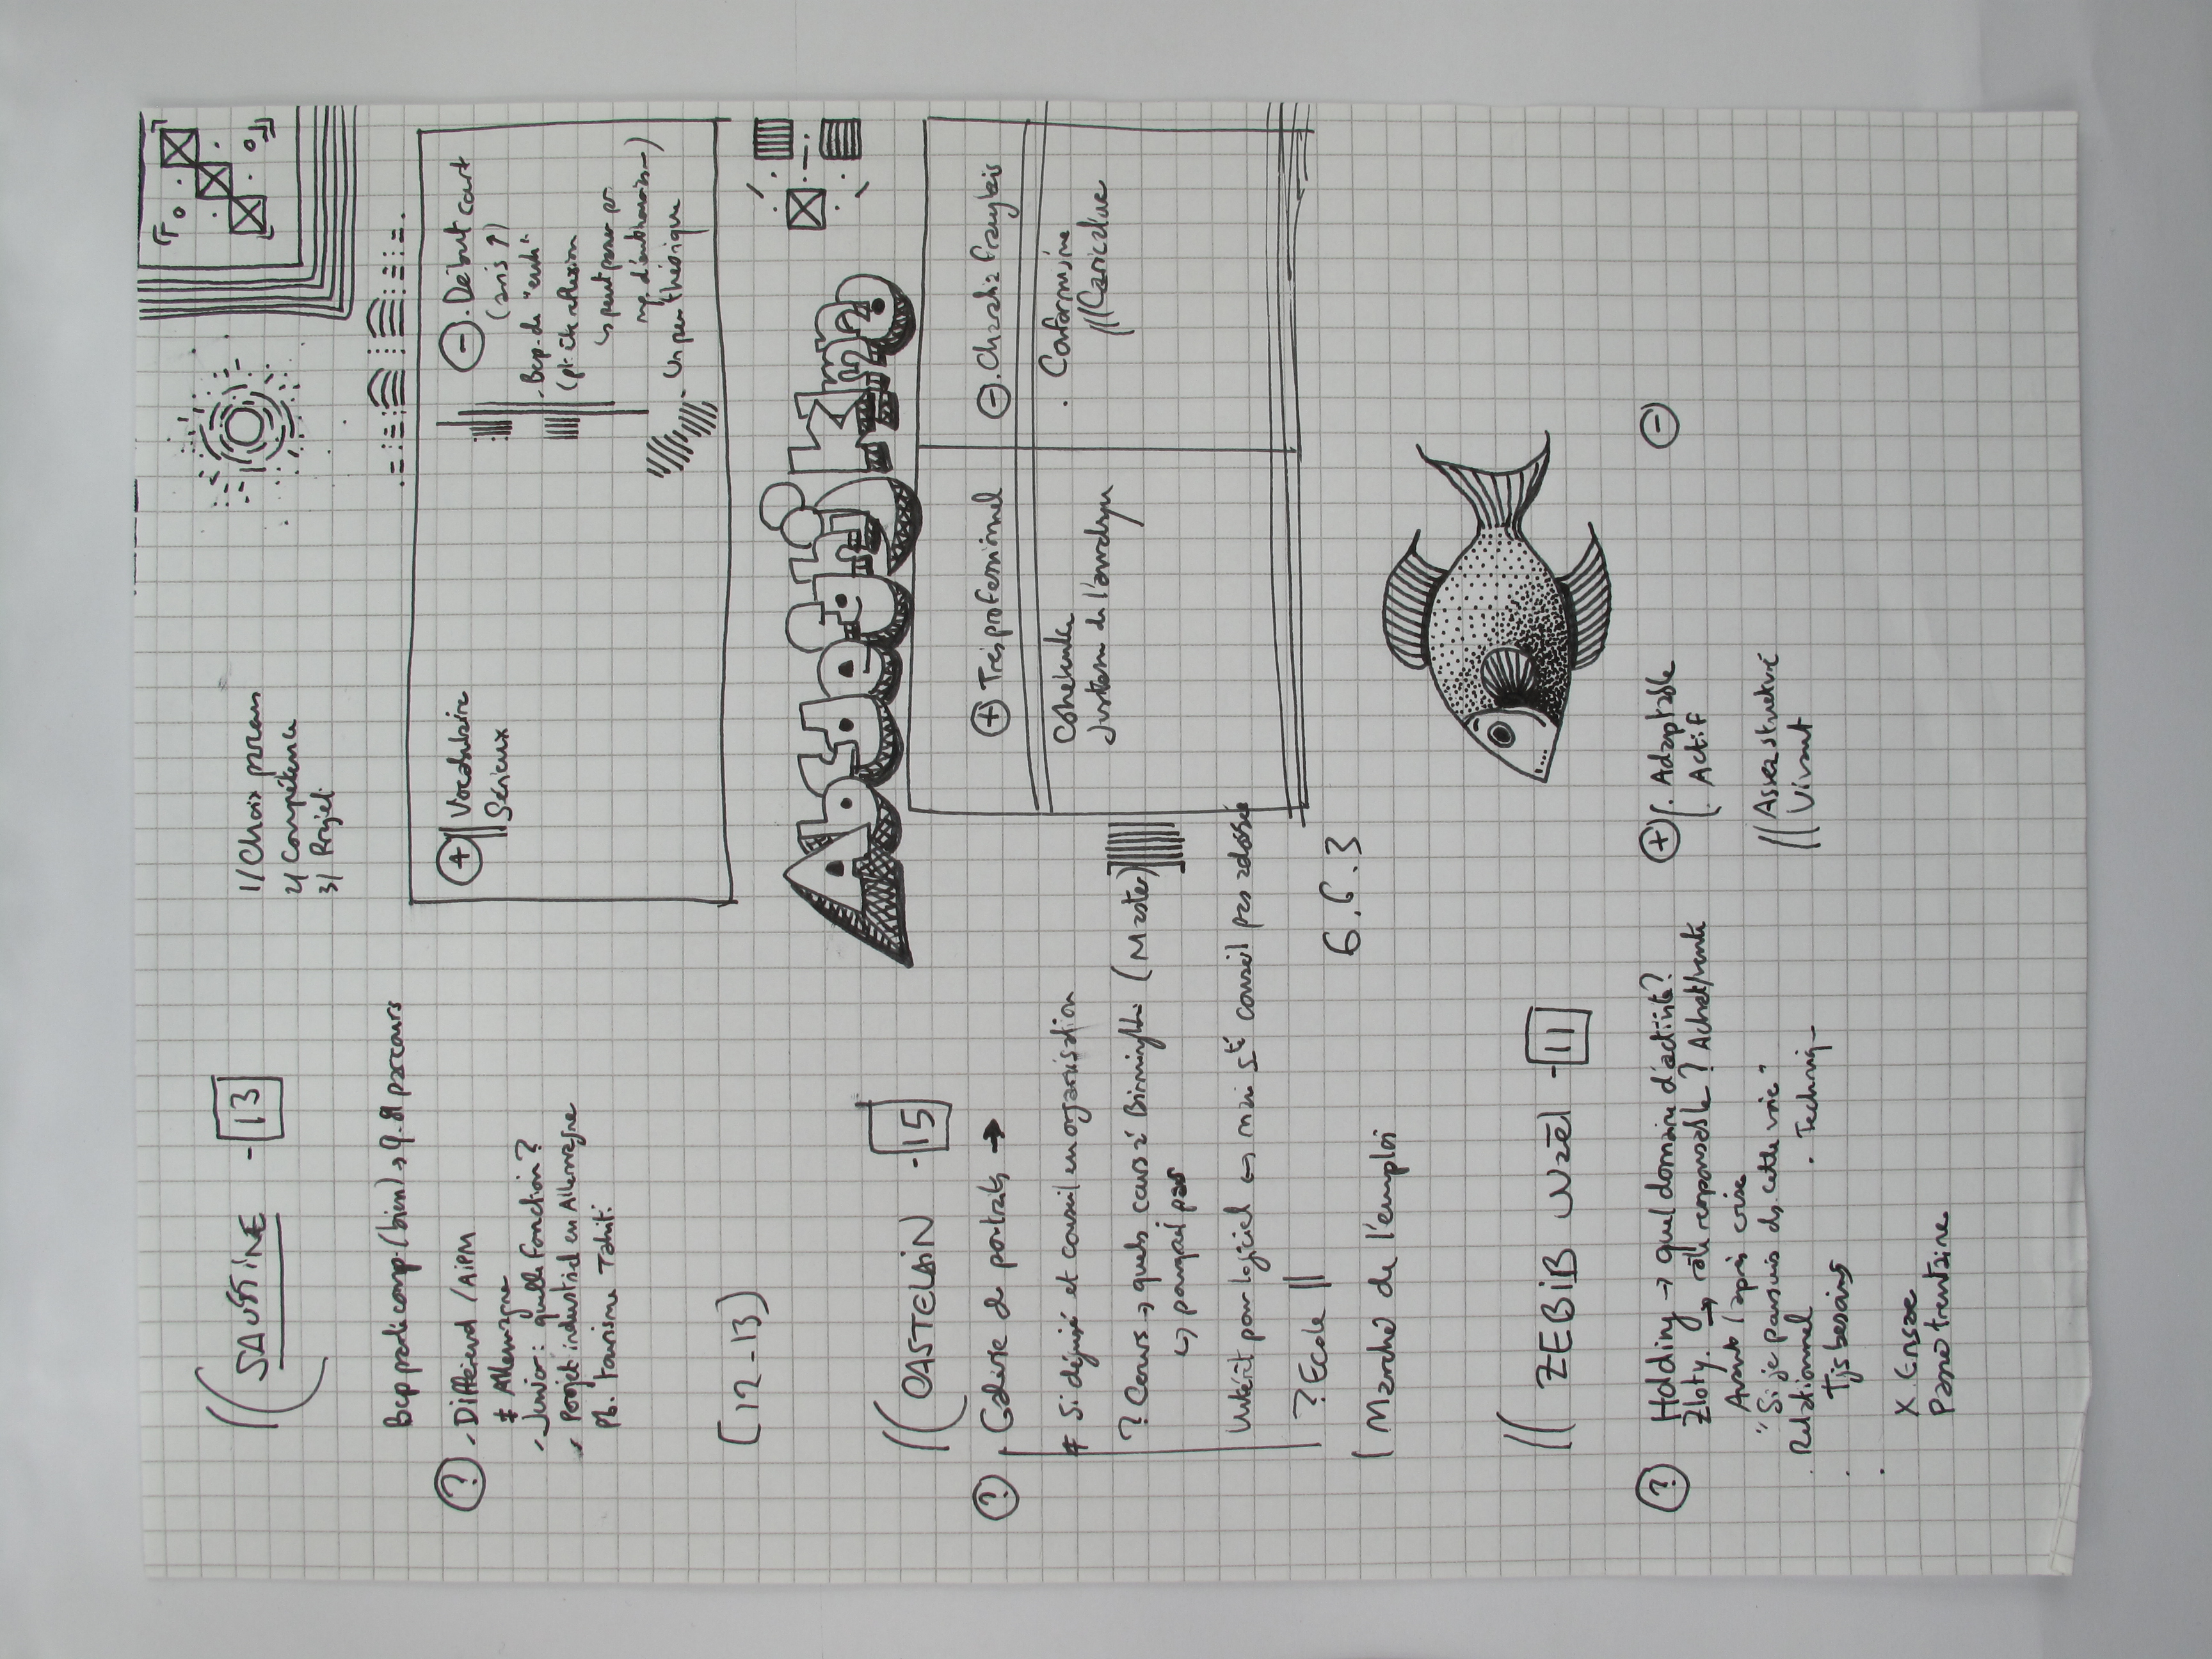 SAUTINE - 13
1/ Choix parcours
2/ Compétence
3/ Projet
Bcp parlé comp. (bien) → parcours
? . Différend / AIPM
≠ Allemagne
- Junior : quelle fonction ?
Projet industriel en Allemagne
Pb. tourisme Tahiti
[12-13)
+ Vocabulaire
Sérieux
- . Début court
. Bcp. de "euh"
(pt être réflexion
↳ peut passer pr
. Un peu théorique
CASTELAIN - 15
? Galerie de portraits →
≠ Si déjugé et conseil en organisation
? Cours → quels cours à Birmingham (Master)
↳ pourquoi pas
Intérêt pour logiciel ↔ conseil pas adossé
? Ecole
( Marché de l'emploi
6.6.3
+ Très professionnel
Cohérente
- . Charabia franglais
. Conformisme
Caricature
ZEBIB Waël - 11
? Holding → quel domaine d'activité ?
Zloty. → rôle responsable ? Achat/vente
Avant / après crise
"Si je poursuis ds cette voie"
. Relationnel . Techniq_
Tjs besoins
X Ensae
+ . Adaptable
. Actif
Assez structuré
Vivant
-